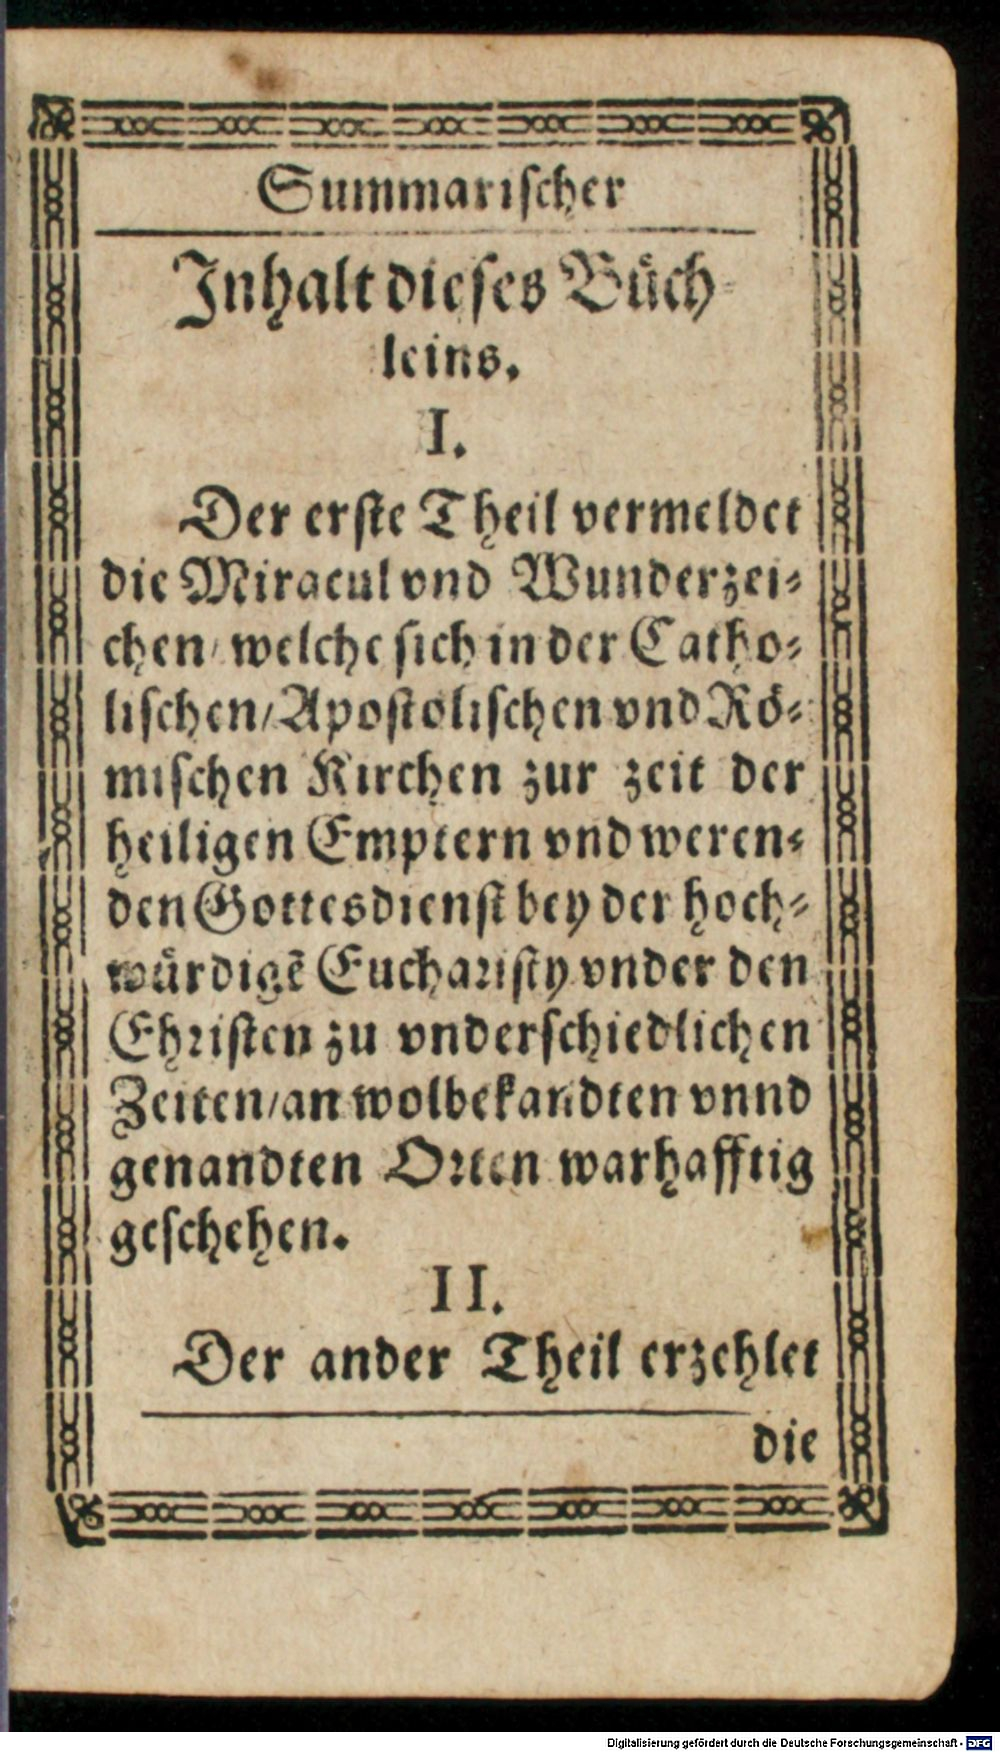 Summarischer
Inhalt dieses Büch-
leins.
I.
Der erste Theil vermeldet
die Miracul vnd Wunderzei-
chen/ welche sich in der Catho-
lischen/ Apostolischen vnd Rö-
mischen Kirchen zur zeit der
heiligen Emptern vnd weren-
den Gottesdienst bey der hoch-
würdigẽ Eucharisty vnder den
Christen zu vnderschiedlichen
Zeiten/ an wolbekandten vnnd
genandten Orten warhafftig
geschehen.
II.
Der ander Theil erzehlet
die
Digitalisierung gefördert durch die Deutsche Forschungsgemeinschaft - DFG